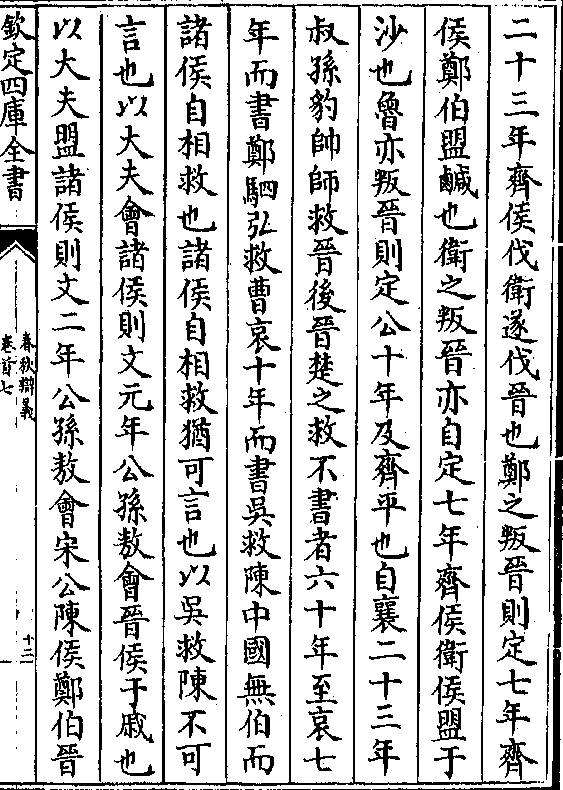 二十三年齊侯伐衛遂伐晉也鄭之叛晉則定七年齊
侯鄭伯盟鹹也衛之叛晉亦自定七年齊侯衛侯盟于
沙也魯亦叛晉則定公十年及齊平也自襄二十三年
叔孫豹帥師救晉後晉楚之救不書者六十年至哀七
年而書鄭駟弘救曹哀十年而書吳救陳中國無伯而
諸侯自相救也諸侯自相救猶可言也以吳救陳不可
言也以大夫會諸侯則文元年公孫敖會晉侯于戚也
以大夫盟諸侯則文二年公孫敖會宋公陳侯鄭伯晉
欽定四庫全書
春秋辯義
卷首七
十二